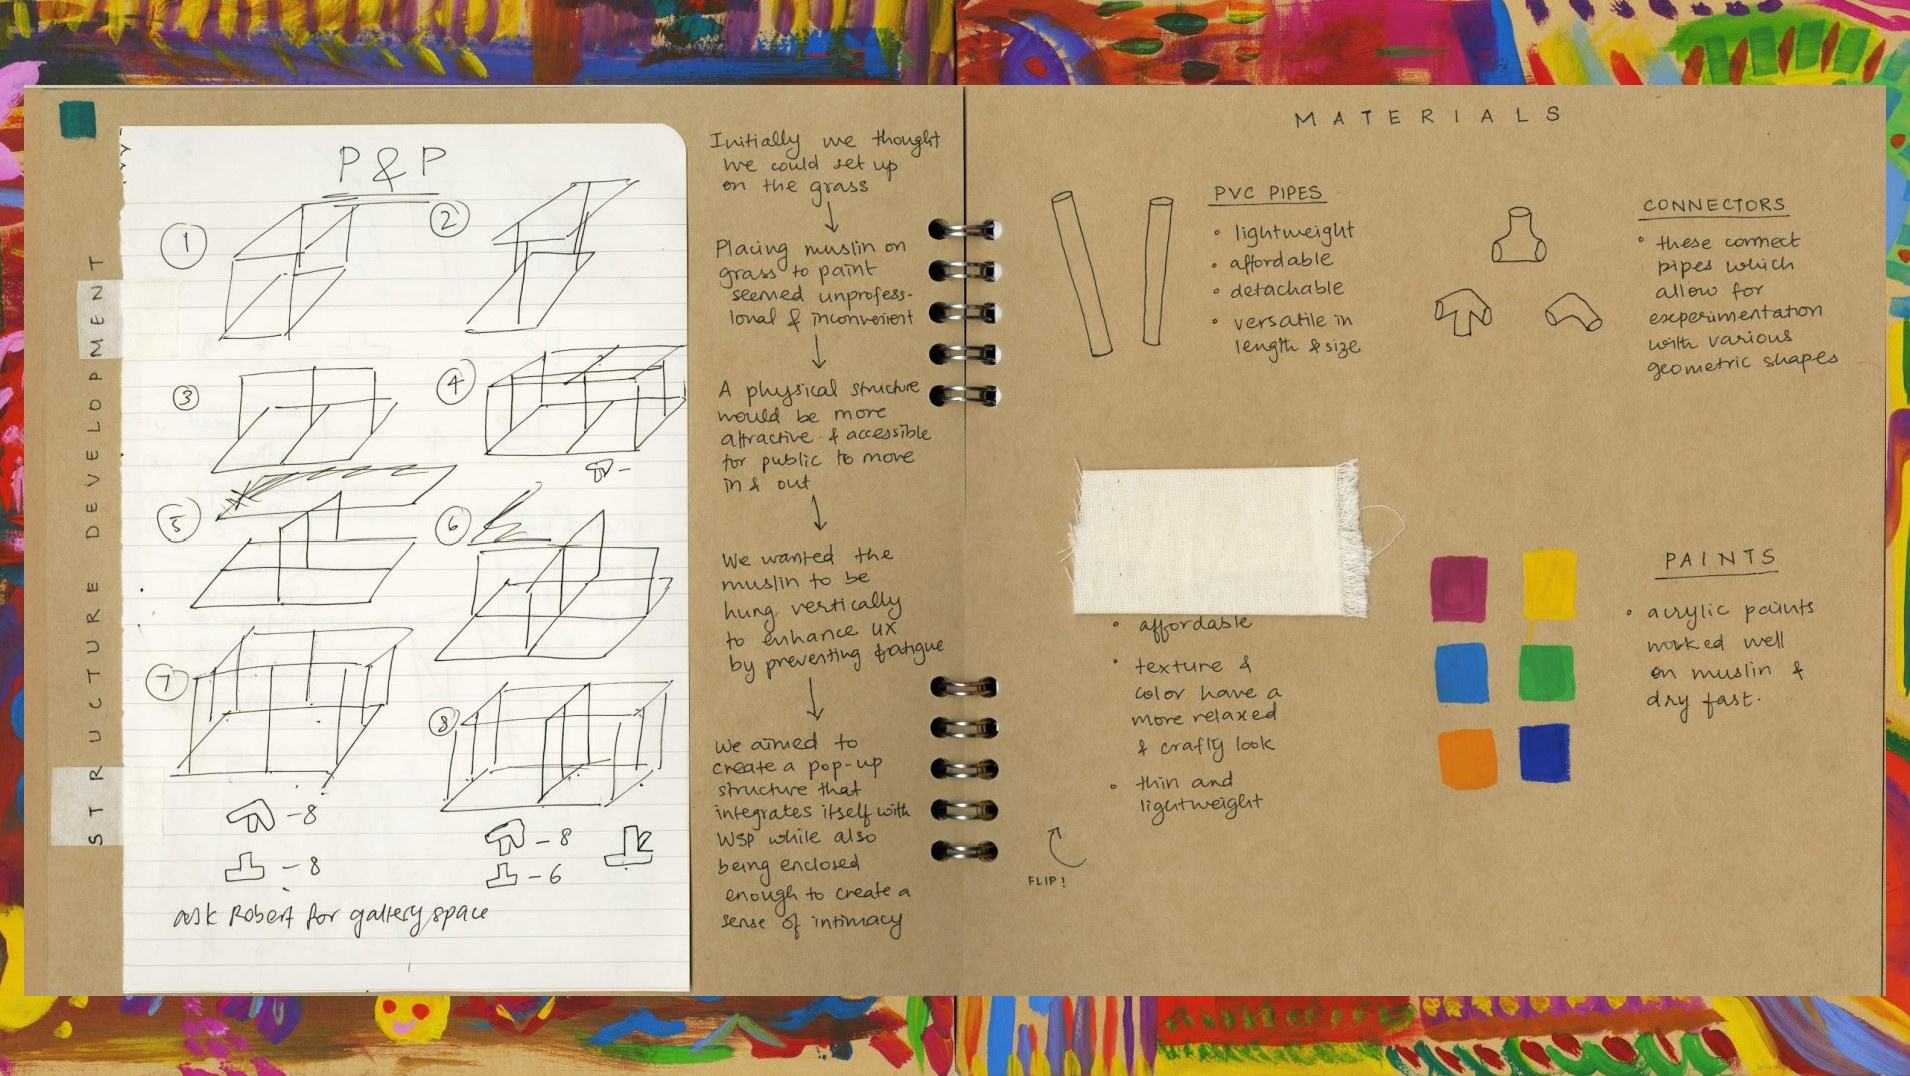 STRUCTURE DEVELOPMENT
P & P
1
2
3
4
5
6
7
8
- 8
- 8
- 8
- 6
ask Robert for gallery space
Initially we thought
we could set up
on the grass
Placing muslin on
grass to paint
seemed unprofess-
ional & inconvenient
A physical structure
would be more
attractive & accessible
for public to move
in & out
We wanted the
muslin to be
hung vertically
to enhance UX
by preventing fatigue
We aimed to
create a pop-up
structure that
integrates itself with
WSP while also
being enclosed
enough to create a
sense of intimacy
MATERIALS
PVC PIPES
• lightweight
• affordable
• detachable
• versatile in
length & size
CONNECTORS
• these connect
pipes which
allow for
experimentation
with various
geometric shapes
• affordable
• texture &
color have a
more relaxed
& crafty look
• thin and
lightweight
FLIP!
PAINTS
• acrylic paints
worked well
on muslin &
dry fast.